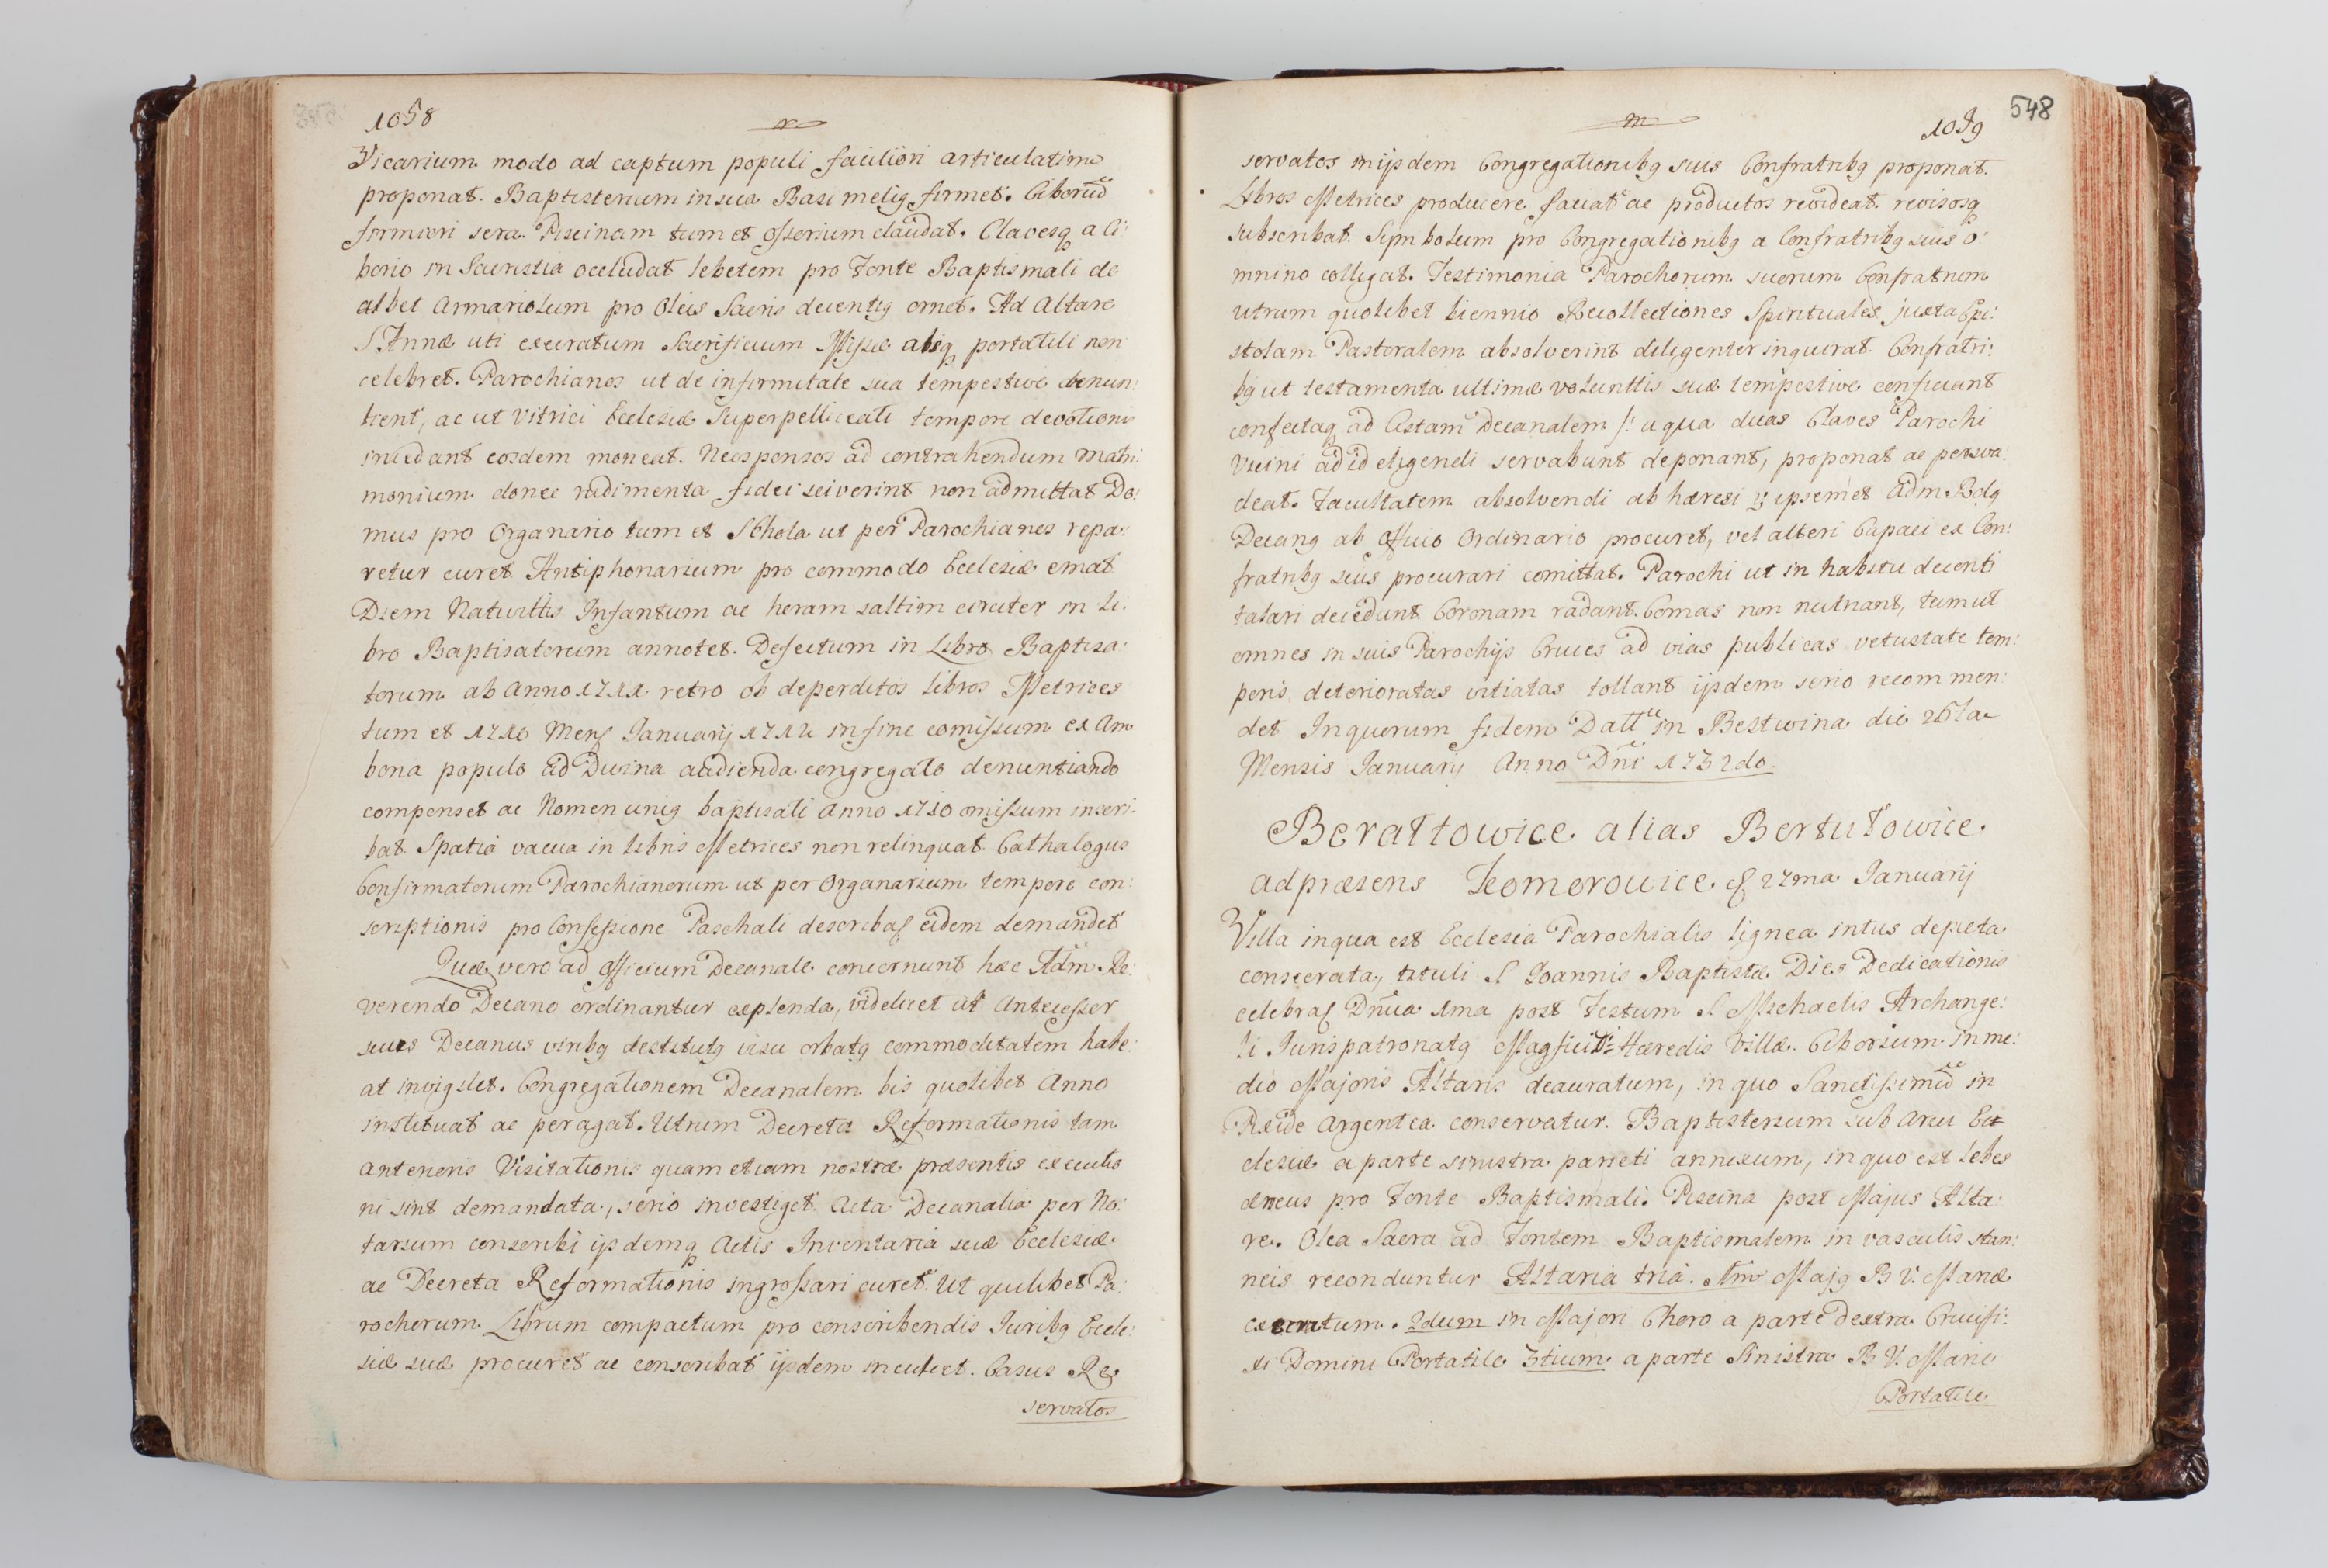 1058
Vicarium modo ad captum populi faciliori articulatim
proponat. Baptisterium in sua Basi meliq firmet. Ciboriũ
firmiori sera Piscinam tum et Ossorium claudat. Clavesq a Ci:
borio in Sacristia occludat lebetem pro Fonte Baptismali de
albet Armariolum pro Oleis Sacris decentiq ornet. Ad Altare
S Annæ uti execratum Sacrificium Missæ absq portatili non
celebret. Parochianos ut de infirmitate sua tempestive denun:
tient, ac ut Vitrici Ecclesiæ Superpelliceati tempore devotioni
incedant eosdem moneat. Neosponsos ad contrahendum Matri:
monium donec rudimenta fidei sciverint non admittat Do:
mus pro Organario tum et Schola ut per Parochianos repa:
retur curet Antiphonarium pro commodo Ecclesiæ emat
Diem Nativittis Infantum ac horam saltim circiter in Li:
bro Baptisatorum annotet. Defectum in Libro Baptisa:
torum ab Anno 1711 retro ob deperditos libros Metrices
tum et 1710 Mens Januarij 1712 in fine comissum ex Am
bona populo ad Divina audienda congregato denuntiando
compenset ac Nomen uniq baptisati Anno 1710 omissum inseri:
bat Spatia vacua in libris Metrices non relinquat Cathalogus
Confirmatorum Parochianorum ut per Organarium tempore con:
scriptionis pro Confessione Paschali describat eidem demandet
Quæ vero ad officium Decanale concernunt hæc Adm. Re:
verendo Decano ordinantur explenda, videlicet ut Antecessor
suus Decanus viribq destitutq visu orbatq commoditatem habe:
at invigilet. Congregationem Decanalem bis quolibet Anno
instituat ac peragat. Utrum Decreta Reformationis tam
anterioris Visitationis quam etiam nostræ præsentis executio
ni sint demandata, serio investiget. Acta Decanalia per No:
tarium conscribi ijsdemq Actis Inventaria suæ Ecclesiæ
ac Decreta Reformationis ingrossari curet. Ut quilibet Pa:
rochorum Librum compactum pro conscribendis Juribq Eccle:
siæ suæ procuret ac conscribat ijsdem inculcet. Casus Re
servatos
m
1059
548
servatos in ijsdem Congregationibq suis Confratribq proponat.
Libros Metrices producere faciat ac productos revideat revisosq
subscribat. Symbolum pro Congregationibq a Confratribq suis o:
mnino colligat. Testimonia Parochorum suorum Confratrum
utrum quolibet biennio Recollectiones Spirituales juxta Epi:
stolam Pastoralem absolverint diligenter inquirat. Confratri:
bq ut testamenta ultimæ volunttis suæ tempestive conficiant
confectaq ad Cistam Decanalem /: a qua duas Claves Parochi
Vicini ad id eligendi servabunt deponant, proponat ac persva:
deat. Facultatem absolvendi ab hæresi ipsemet Adm. Rdq
Decanq ab Officio Ordinario procuret, vel alteri Capaci ex Con:
fratribq suis procurari comittat. Parochi ut in habitu decenti
talari incedunt Coronam radant. Comas non nutriant, tum ut
omnes in suis Parochijs Cruces ad vias publicas vetustate tem:
poris deterioratas vitiatas tollant ijsdem serio recommen:
det In quorum fidem Datt in Bestwina die 26ta
Mensis Januarij Anno Dñi 1732do.
Berałtowice alias Bertułowice.
ad præsens Komorowice. 27ma Januarij
Villa in qua est Ecclesia Parochialis lignea intus depicta
consecrata, tituli S Joannis Baptistæ Dies Dedicationis
celebrat Dñica 1ma post Festum S Michaelis Archange:
li Juris patronatq Magfici Hæredis Villæ. Ciborium in me:
dio Majoris Altaris deauratum, in quo Sanctissimũ in
Pixide argentea conservatur. Baptisterium sub Arcu Ec
clesiæ a parte sinistra parieti annexum, in quo est lebes
æneus pro Fonte Baptismali. Piscina post Majus Alta:
re. Olea Sacra ad Fontem Baptismalem in vasculis stan:
neis reconduntur Altaria tria. 1m Majq B V. Mariæ
execratum. 2dum in Majori Choro a parte dextra Crucifi:
xi Domini Portatile 3tium a parte Sinistra B V. Mariæ
Portatile